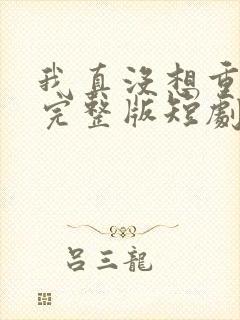 我真没想重
完整版短劇
吕三龍